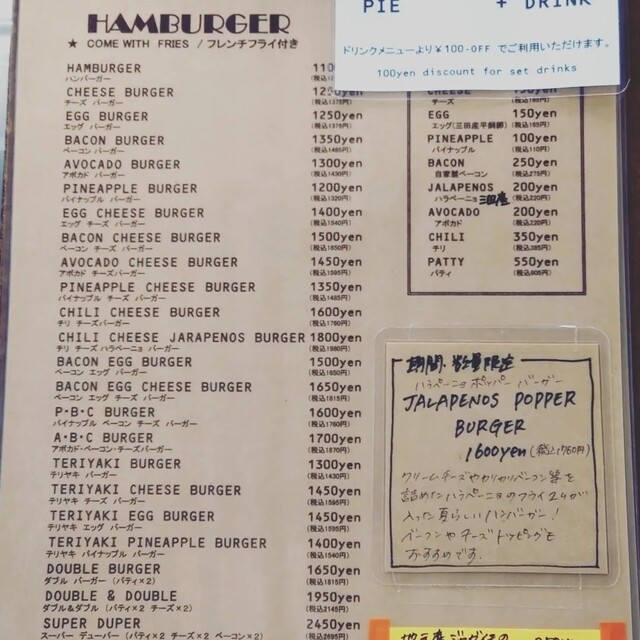 HAMBURGER
★ COME WITH FRIES / フレンチフライ付き
HAMBURGER
ハンバーガー
CHEESE BURGER
チーズ バーガー
(税込1375円)
EGG BURGER 1250yen
エッグ バーガー (税込1375円)
BACON BURGER 1350yen
ベーコン バーガー (税込1485円)
AVOCADO BURGER 1300yen
アボカド バーガー (税込1430円)
PINEAPPLE BURGER 1200yen
パイナップル バーガー (税込1320円)
EGG CHEESE BURGER 1400yen
エッグ チーズ バーガー (税込1540円)
BACON CHEESE BURGER 1500yen
ベーコン チーズ バーガー (税込1650円)
AVOCADO CHEESE BURGER 1450yen
アボカド チーズ バーガー (税込1595円)
PINEAPPLE CHEESE BURGER 1350yen
パイナップル チーズ バーガー (税込1485円)
CHILI CHEESE BURGER 1600yen
チリ チーズバーガー (税込1760円)
CHILI CHEESE JARAPENOS BURGER 1800yen
チリ チーズ ハラペーニョ バーガー (税込1980円)
BACON EGG BURGER 1500yen
ベーコン エッグ バーガー (税込1650円)
BACON EGG CHEESE BURGER 1650yen
ベーコン エッグ チーズ バーガー (税込1815円)
P・B・C BURGER 1600yen
パイナップル ベーコン チーズ バーガー (税込1760円)
A・B・C BURGER 1700yen
アボカド・ベーコン・チーズバーガー (税込1870円)
TERIYAKI BURGER 1300yen
テリヤキ バーガー (税込1430円)
TERIYAKI CHEESE BURGER 1450yen
テリヤキ チーズ バーガー (税込1595円)
TERIYAKI EGG BURGER 1450yen
テリヤキ エッグ バーガー (税込1595円)
TERIYAKI PINEAPPLE BURGER 1400yen
テリヤキ パイナップル バーガー (税込1540円)
DOUBLE BURGER 1650yen
ダブル バーガー (パティ×2) (税込1815円)
DOUBLE & DOUBLE 1950yen
ダブル&ダブル (パティ×2 チーズ×2) (税込2145円)
SUPER DUPER 2450yen
スーパー デューパー (パティ×2 チーズ×2 ベーコン×2) (税込2695円)
PIE + DRINK
ドリンクメニューより¥100-OFF でご利用いただけます。
100yen discount for set drinks
CHEESE
チーズ (税込165円)
EGG 150yen
エッグ(三田産平飼卵) (税込165円)
PINEAPPLE 100yen
パイナップル (税込110円)
BACON 250yen
自家製ベーコン (税込275円)
JALAPENOS 200yen
ハラペーニョ 三田産 (税込220円)
AVOCADO 200yen
アボカド (税込220円)
CHILI 350yen
チリ (税込385円)
PATTY 550yen
パティ (税込605円)
期間・数量限定
ハラペーニョ ポッパー バーガー
JALAPENOS POPPER
BURGER
1600yen (税込1760円)
クリームチーズやカリカリベーコン等を
詰めたハラペーニョのフライ2ケが
入った夏らしいハンバーガー!
ベーコンやチーズトッピングも
おすすめです。